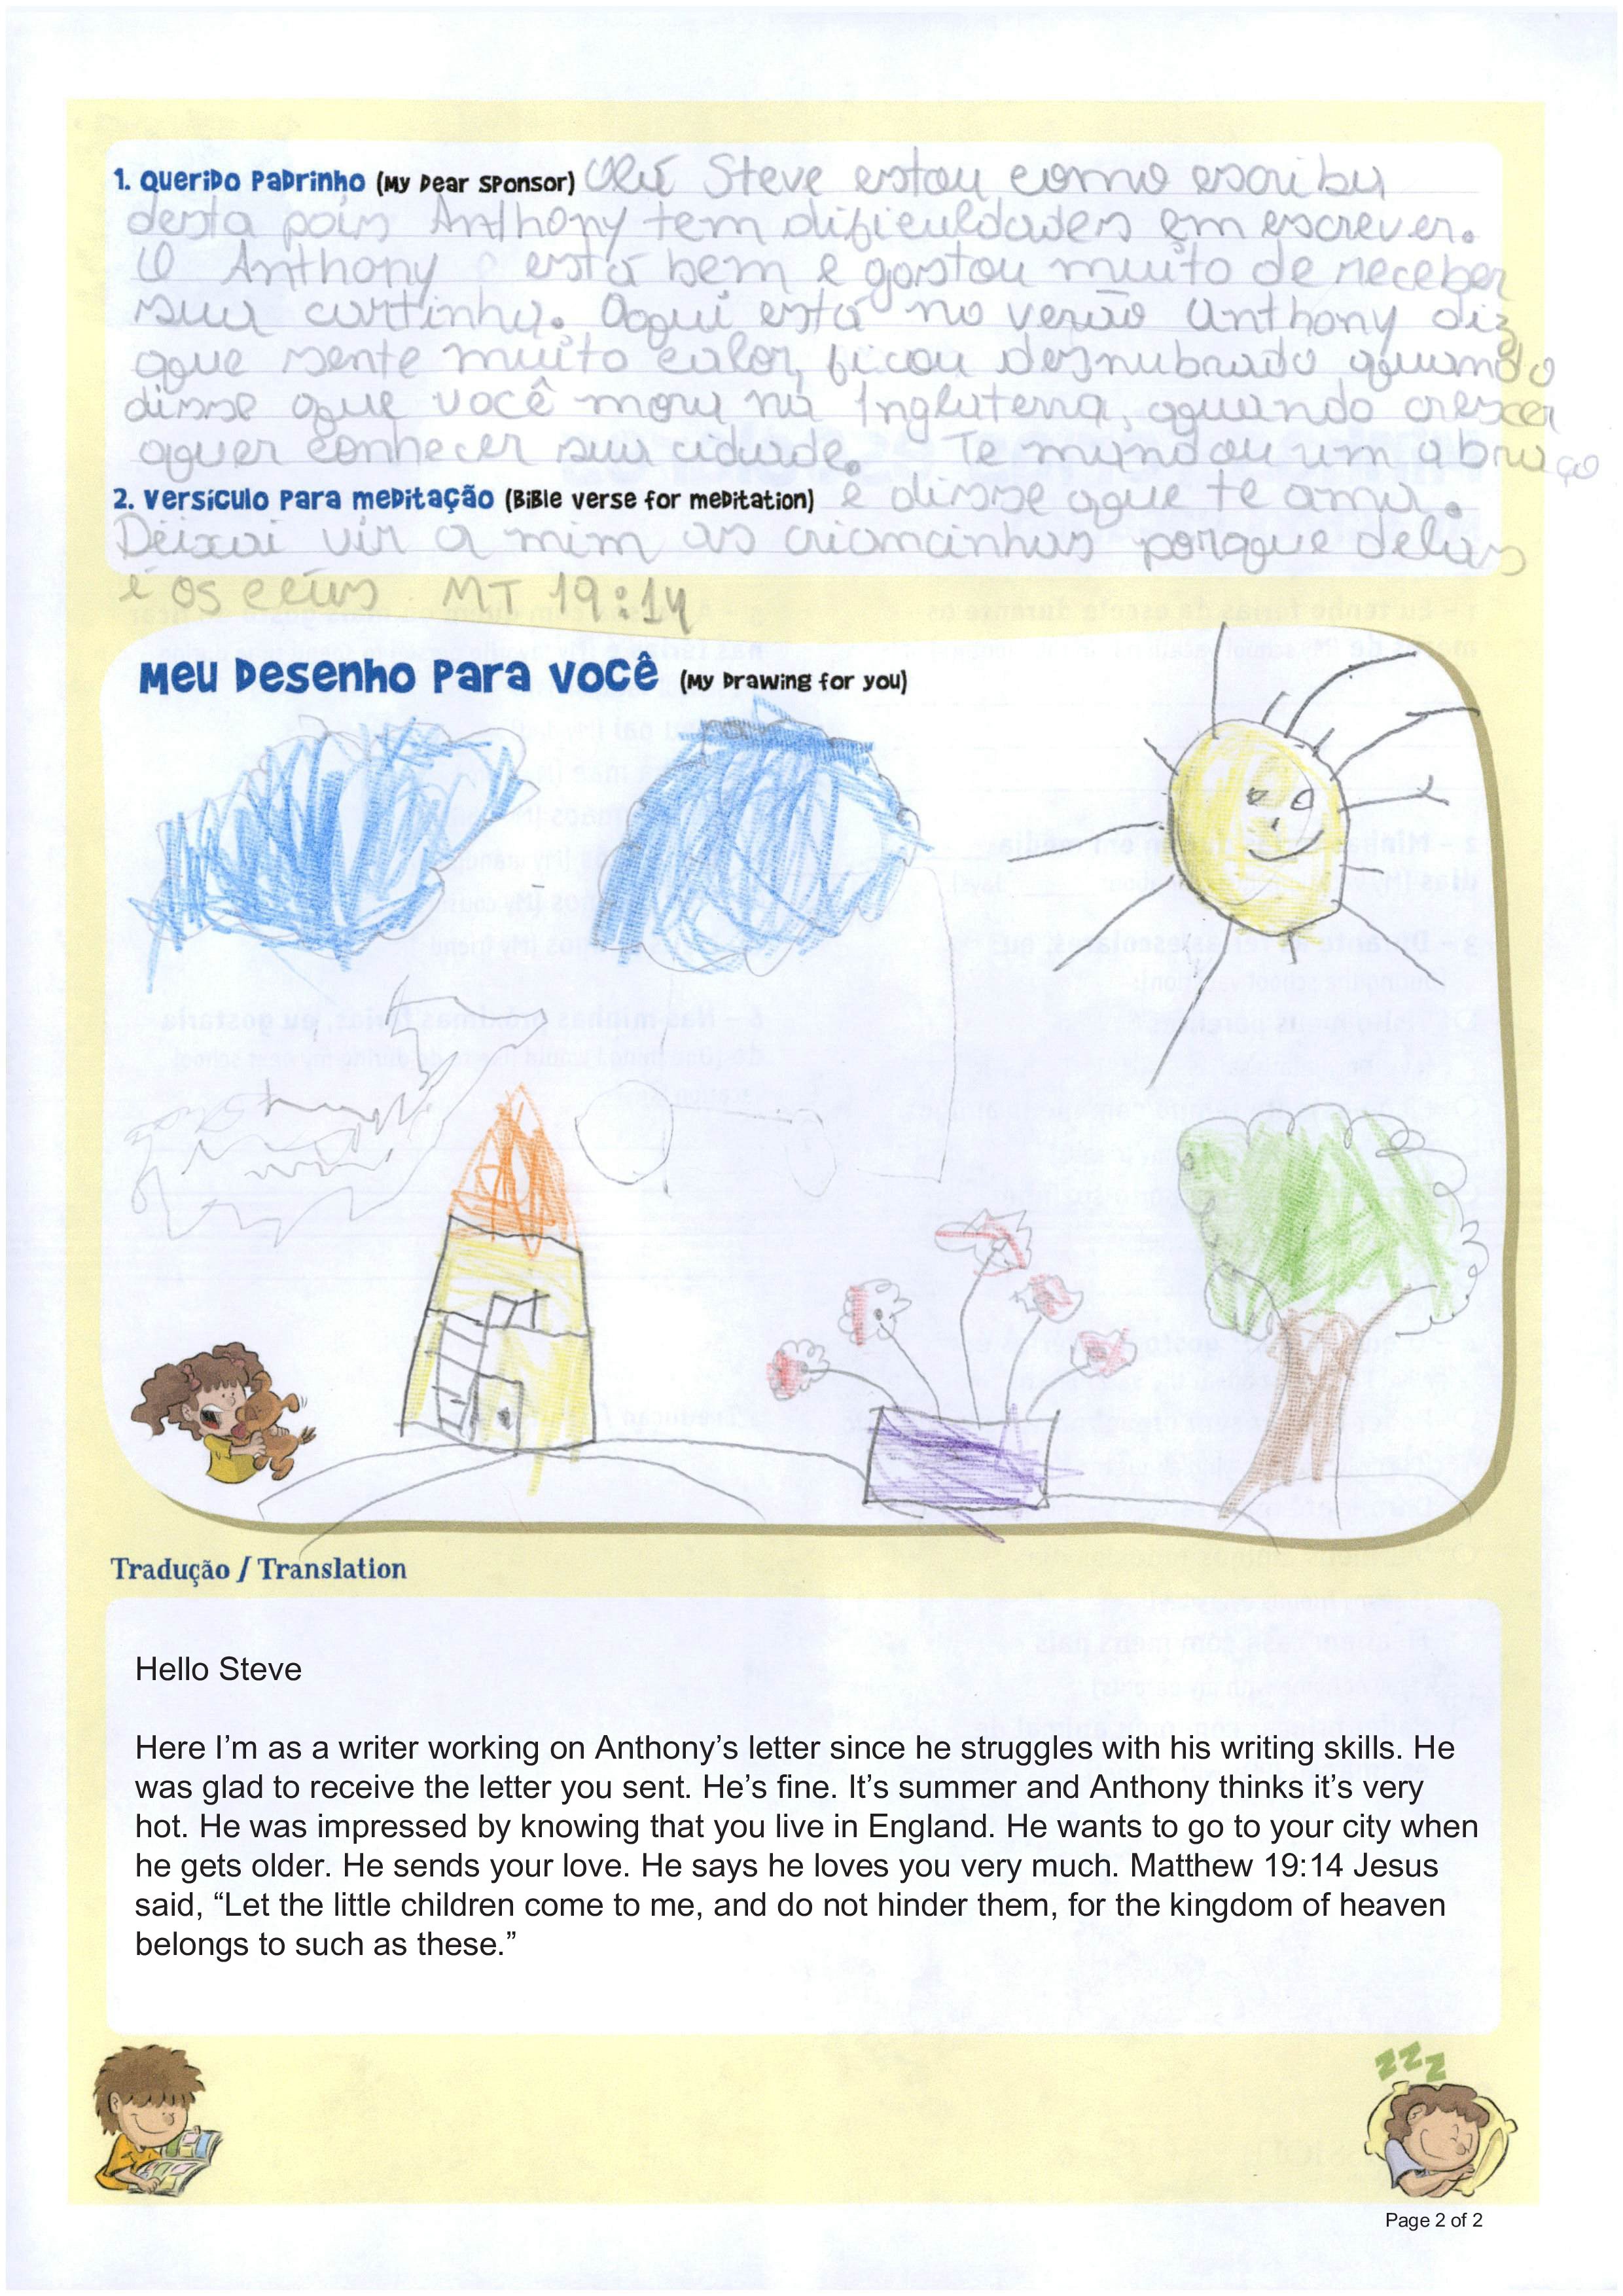 1. Querido Padrinho (My Dear Sponsor) Olá Steve estou como escriba
desta pois Anthony tem dificuldades em escrever.
O Anthony está bem e gostou muito de receber
sua cartinha. Aqui está no verão Anthony diz
que sente muito calor, ficou deslumbrado quando
disse que você mora na Inglaterra, quando crescer
quer conhecer sua cidade. Te mandou um abraço
2. Versículo para meditação (Bible verse for meditation) e disse que te ama.
Deixai vir a mim as criancinhas porque delas
é os céus MT 19:14
Meu Desenho Para Você (My Drawing for you)
Tradução / Translation
Hello Steve
Here I'm as a writer working on Anthony's letter since he struggles with his writing skills. He
was glad to receive the letter you sent. He's fine. It's summer and Anthony thinks it's very
hot. He was impressed by knowing that you live in England. He wants to go to your city when
he gets older. He sends your love. He says he loves you very much. Matthew 19:14 Jesus
said, “Let the little children come to me, and do not hinder them, for the kingdom of heaven
belongs to such as these.”
zzz
Page 2 of 2